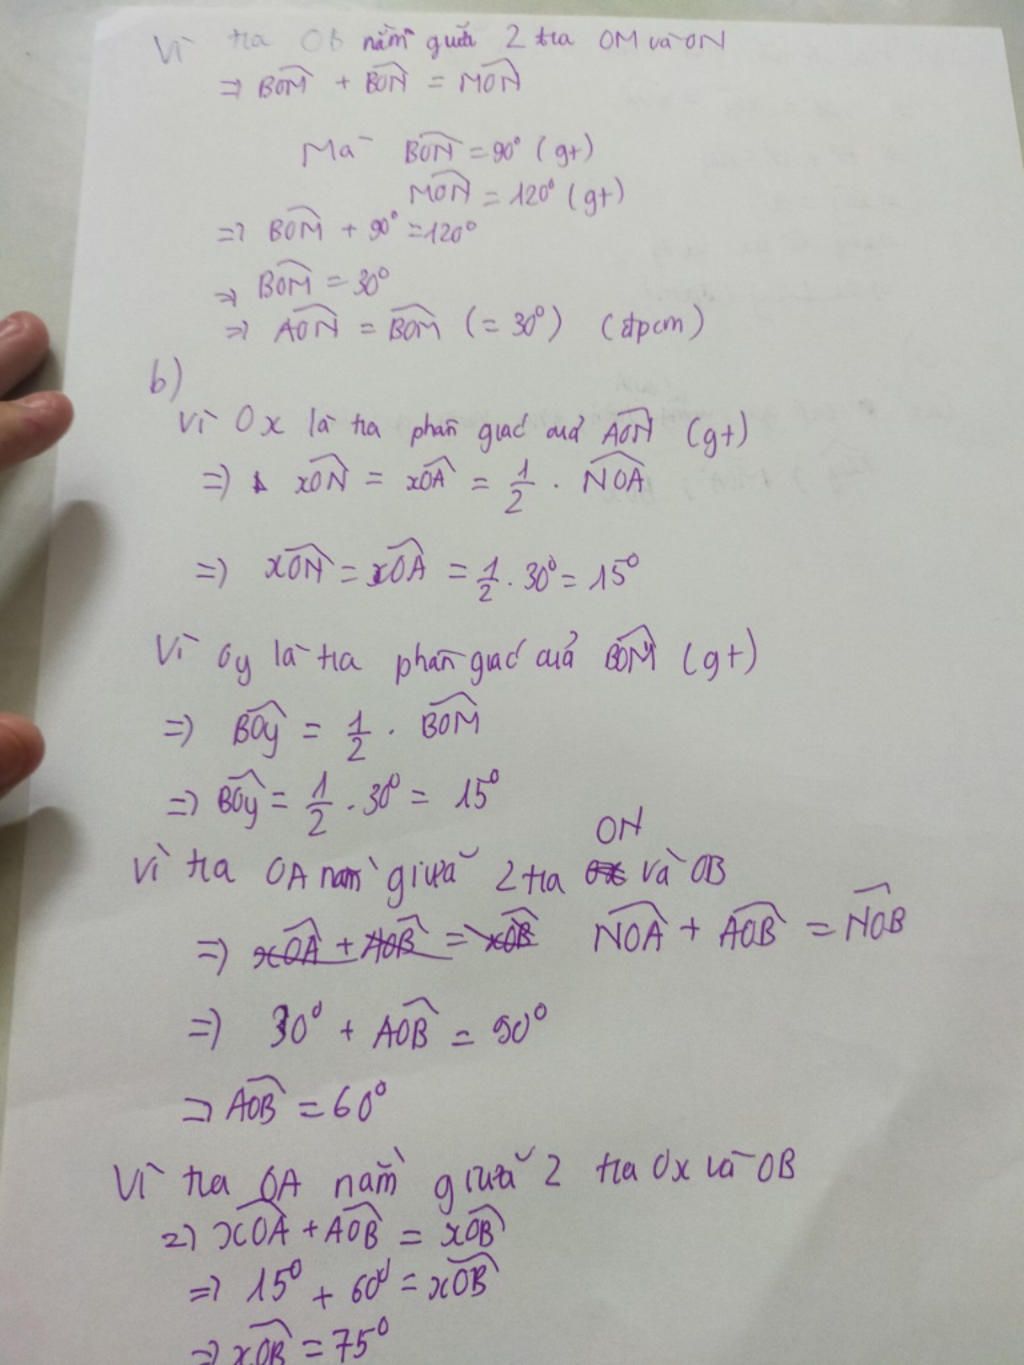 Vì tia OB nằm giữa 2 tia OM và ON
=> BOM + BON = MON
Mà BON = 90° (gt)
MON = 120° (gt)
=> BOM + 90° = 120°
=> BOM = 30°
=> AON = BOM (= 30°) (đpcm)
b)
Vì Ox là tia phân giác của AON (gt)
=> xON = xOA = 1/2 . NOA
=> xON = xOA = 1/2 . 30° = 15°
Vì Oy là tia phân giác của BOM (gt)
=> BOy = 1/2 . BOM
=> BOy = 1/2 . 30° = 15°
ON
Vì tia OA nằm giữa 2 tia Ox và OB
=> xOA + AOB = xOB NOA + AOB = NOB
=> 30° + AOB = 90°
=> AOB = 60°
Vì tia OA nằm giữa 2 tia Ox và OB
=> xOA + AOB = xOB
=> 15° + 60° = xOB
=> xOB = 75°